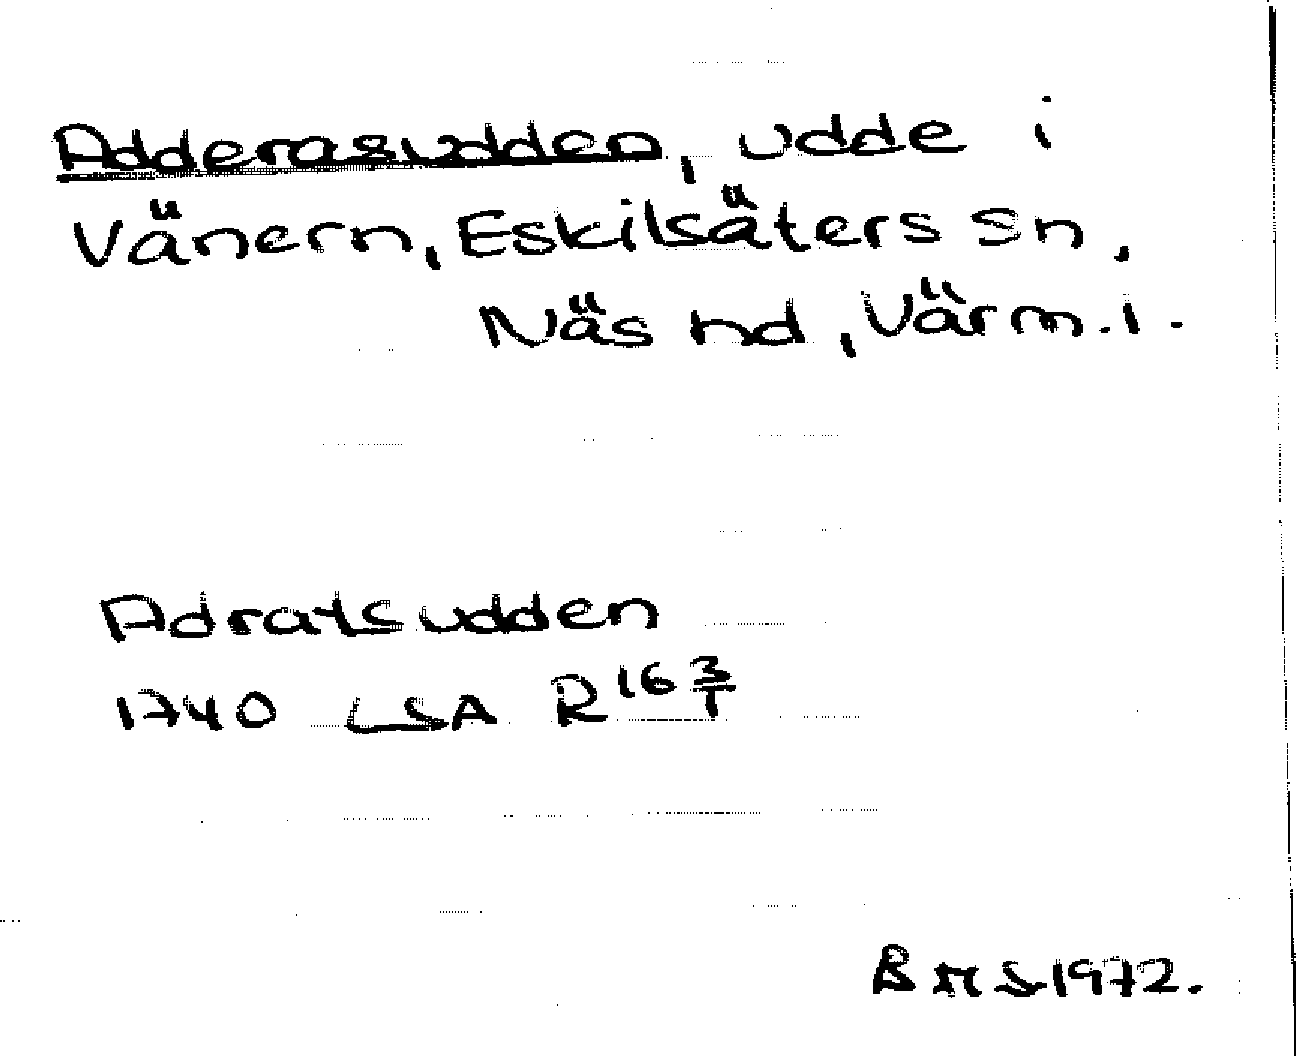 Adderasudden, udde i
Vänern, Eskilsäters sn,
Näs hd, Värm. l.
Adratsudden
1740 LSA R 16 3/1
BMS 1972.